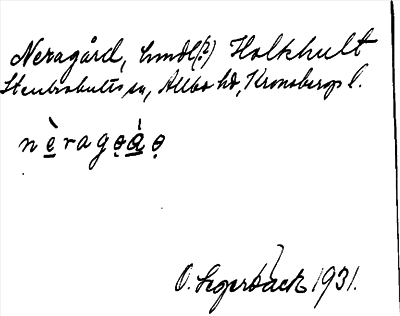 Neragård, hmdl(?) Holkhult
Stenbrohults sn, Allbo hd, Kronobergs l.
nèragẹàọ
O. Segerbäck 1931.